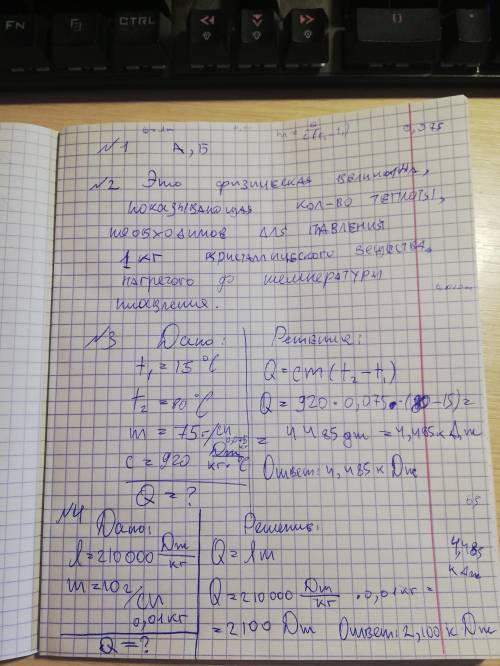 FN
CTRL
0,075
№1 А, Б
№2 Это физическая величина,
показывающая кол-во теплоты,
необходимое для плавления
1 кг кристаллического вещества,
нагретого до температуры
плавления.
№3 Дано:
t₁ = 15 °C
t₂ = 80 °C
m = 75 г/СИ
0,075 кг
c = 920 Дж/кг·°C
Q = ?
Решение:
Q = cm(t₂ - t₁)
Q = 920 · 0,075 · (80 - 15) =
= 4485 дж = 4,485 кДж
Ответ: 4,485 кДж
№4 Дано:
l = 210 000 Дж/кг
m = 10 г/СИ
0,01 кг
Q = ?
Решение:
Q = lm
Q = 210000 Дж/кг · 0,01 кг =
= 2100 Дж Ответ: 2,100 кДж
65
4,485
кДж